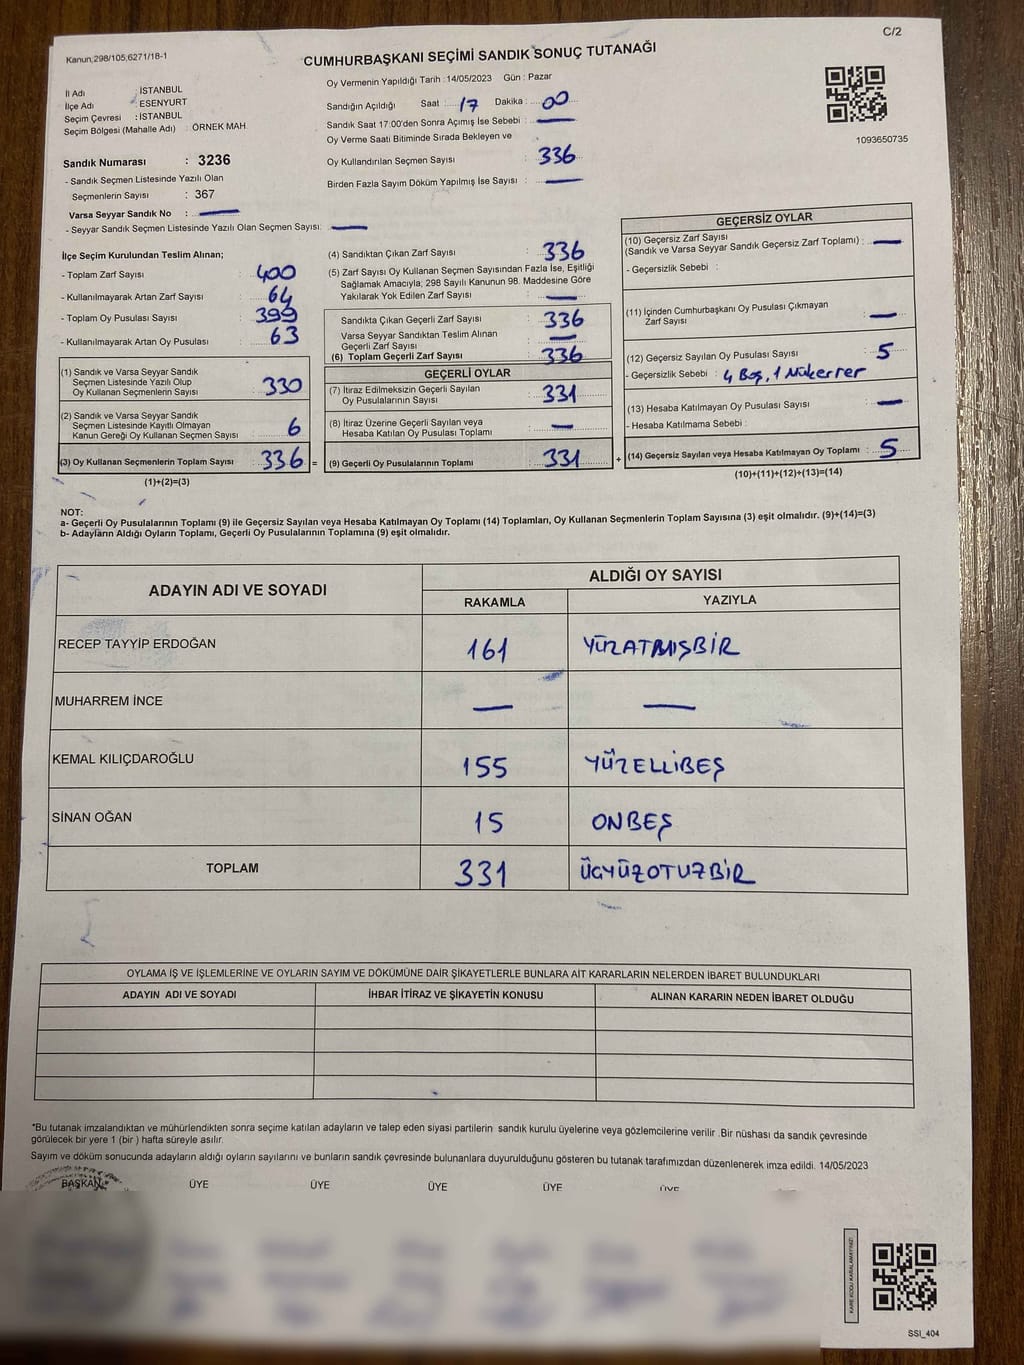 C/2
Kanun;298/105;6271/18-1
CUMHURBAŞKANI SEÇİMİ SANDIK SONUÇ TUTANAĞI
İl Adı : İSTANBUL
İlçe Adı : ESENYURT
Seçim Çevresi : İSTANBUL
Seçim Bölgesi (Mahalle Adı) : ÖRNEK MAH.
Sandık Numarası : 3236
- Sandık Seçmen Listesinde Yazılı Olan
Seçmenlerin Sayısı : 367
Varsa Seyyar Sandık No : —
- Seyyar Sandık Seçmen Listesinde Yazılı Olan Seçmen Sayısı: —
Oy Vermenin Yapıldığı Tarih : 14/05/2023 Gün : Pazar
Sandığın Açıldığı Saat : 17 Dakika : 00
Sandık Saat 17:00'den Sonra Açımış İse Sebebi : —
Oy Verme Saati Bitiminde Sırada Bekleyen ve
Oy Kullandırılan Seçmen Sayısı : 336
Birden Fazla Sayım Döküm Yapılmış İse Sayısı : —
1093650735
İlçe Seçim Kurulundan Teslim Alınan;
- Toplam Zarf Sayısı : 400
- Kullanılmayarak Artan Zarf Sayısı : 64
- Toplam Oy Pusulası Sayısı : 399
- Kullanılmayarak Artan Oy Pusulası : 63
(1) Sandık ve Varsa Seyyar Sandık
Seçmen Listesinde Yazılı Olup
Oy Kullanan Seçmenlerin Sayısı : 330
(2) Sandık ve Varsa Seyyar Sandık
Seçmen Listesinde Kayıtlı Olmayan
Kanun Gereği Oy Kullanan Seçmen Sayısı : 6
(3) Oy Kullanan Seçmenlerin Toplam Sayısı : 336 =
(1)+(2)=(3)
(4) Sandıktan Çıkan Zarf Sayısı : 336
(5) Zarf Sayısı Oy Kullanan Seçmen Sayısından Fazla İse, Eşitliği
Sağlamak Amacıyla; 298 Sayılı Kanunun 98. Maddesine Göre
Yakılarak Yok Edilen Zarf Sayısı : —
Sandıkta Çıkan Geçerli Zarf Sayısı : 336
Varsa Seyyar Sandıktan Teslim Alınan
Geçerli Zarf Sayısı : —
(6) Toplam Geçerli Zarf Sayısı : 336
GEÇERLİ OYLAR
(7) İtiraz Edilmeksizin Geçerli Sayılan
Oy Pusulalarının Sayısı : 331
(8) İtiraz Üzerine Geçerli Sayılan veya
Hesaba Katılan Oy Pusulası Toplamı : —
(9) Geçerli Oy Pusulalarının Toplamı : 331 +
GEÇERSİZ OYLAR
(10) Geçersiz Zarf Sayısı
(Sandık ve Varsa Seyyar Sandık Geçersiz Zarf Toplamı) : —
- Geçersizlik Sebebi :
(11) İçinden Cumhurbaşkanı Oy Pusulası Çıkmayan
Zarf Sayısı : —
(12) Geçersiz Sayılan Oy Pusulası Sayısı : 5
- Geçersizlik Sebebi : 4 Boş, 1 Mükerrer
(13) Hesaba Katılmayan Oy Pusulası Sayısı : —
- Hesaba Katılmama Sebebi :
(14) Geçersiz Sayılan veya Hesaba Katılmayan Oy Toplamı : 5
(10)+(11)+(12)+(13)=(14)
NOT:
a- Geçerli Oy Pusulalarının Toplamı (9) ile Geçersiz Sayılan veya Hesaba Katılmayan Oy Toplamı (14) Toplamları, Oy Kullanan Seçmenlerin Toplam Sayısına (3) eşit olmalıdır. (9)+(14)=(3)
b- Adayların Aldığı Oyların Toplamı, Geçerli Oy Pusulalarının Toplamına (9) eşit olmalıdır.
ADAYIN ADI VE SOYADI ALDIĞI OY SAYISI
RAKAMLA YAZIYLA
RECEP TAYYİP ERDOĞAN 161 YÜZATMIŞBİR
MUHARREM İNCE — —
KEMAL KILIÇDAROĞLU 155 YÜZELLİBEŞ
SİNAN OĞAN 15 ONBEŞ
TOPLAM 331 ÜÇYÜZOTUZBİR
OYLAMA İŞ VE İŞLEMLERİNE VE OYLARIN SAYIM VE DÖKÜMÜNE DAİR ŞİKAYETLERLE BUNLARA AİT KARARLARIN NELERDEN İBARET BULUNDUKLARI
ADAYIN ADI VE SOYADI İHBAR İTİRAZ VE ŞİKAYETİN KONUSU ALINAN KARARIN NEDEN İBARET OLDUĞU
*Bu tutanak imzalandıktan ve mühürlendikten sonra seçime katılan adayların ve talep eden siyasi partilerin sandık kurulu üyelerine veya gözlemcilerine verilir .Bir nüshası da sandık çevresinde
görülecek bir yere 1 (bir ) hafta süreyle asılır.
Sayım ve döküm sonucunda adayların aldığı oyların sayılarını ve bunların sandık çevresinde bulunanlara duyurulduğunu gösteren bu tutanak tarafımızdan düzenlenerek imza edildi. 14/05/2023
BAŞKAN ÜYE ÜYE ÜYE ÜYE ÜYE
KARE KODU KARALAMAYINIZ!
SSI_404